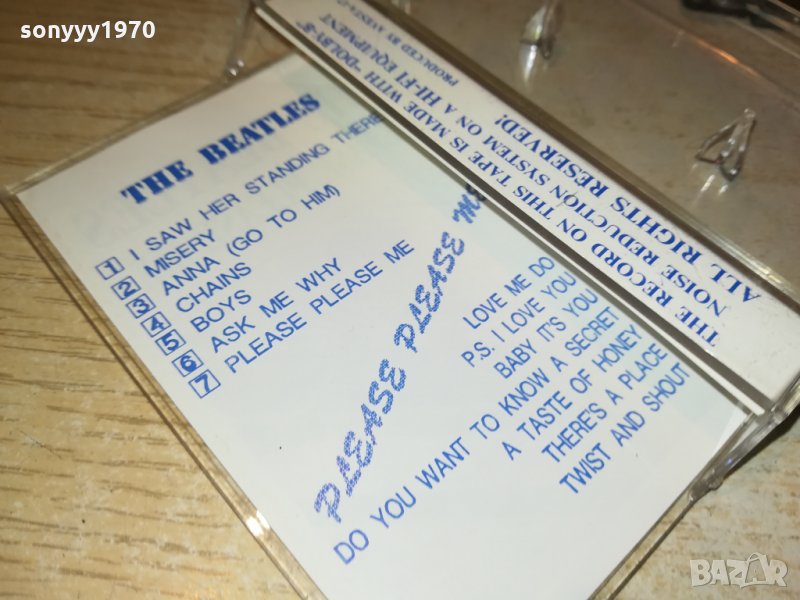 sonyyy1970
THE BEATLES
1 I SAW HER STANDING THERE
2 MISERY
3 ANNA (GO TO HIM)
4 CHAINS
5 BOYS
6 ASK ME WHY
7 PLEASE PLEASE ME
PLEASE PLEASE ME
LOVE ME DO
P.S. I LOVE YOU
BABY IT'S YOU
DO YOU WANT TO KNOW A SECRET
A TASTE OF HONEY
THERE'S A PLACE
TWIST AND SHOUT
THE RECORD ON THIS TAPE IS MADE WITH "DOLBY-S"
NOISE REDUCTION SYSTEM ON A HI-FI EQUIPMENT
ALL RIGHTS RESERVED!
PRODUCED BY
BAZAR